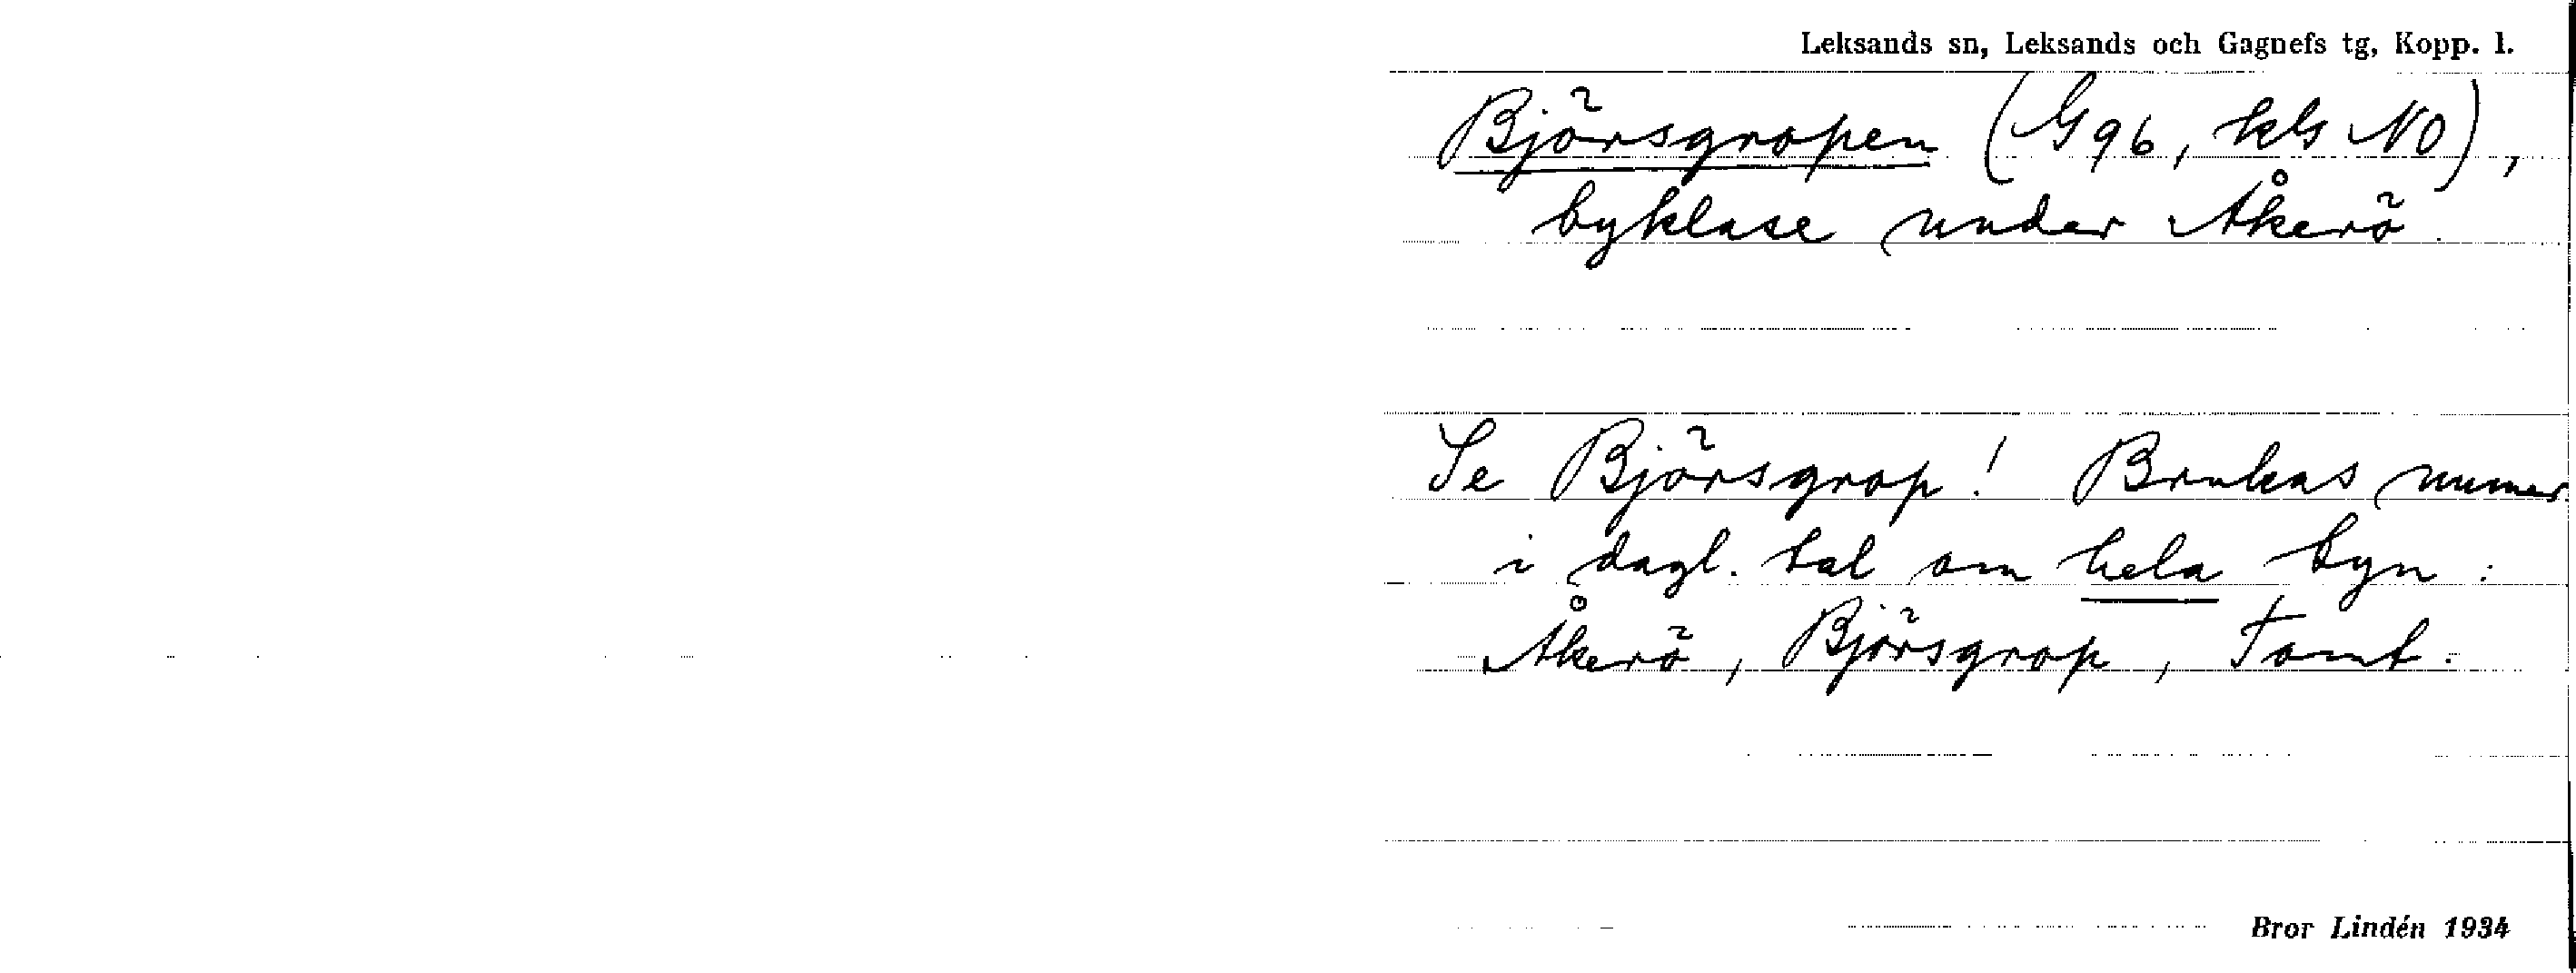 Leksands sn, Leksands och Gagnefs tg, Kopp. l.
Björsgropen (G 96, kls NO),
byklase under Åkerö.
Se Björsgrop! Brukas numer.
i dagl. tal om hela byn:
Åkerö, Björsgrop, Tomt.
Bror Lindén 1934